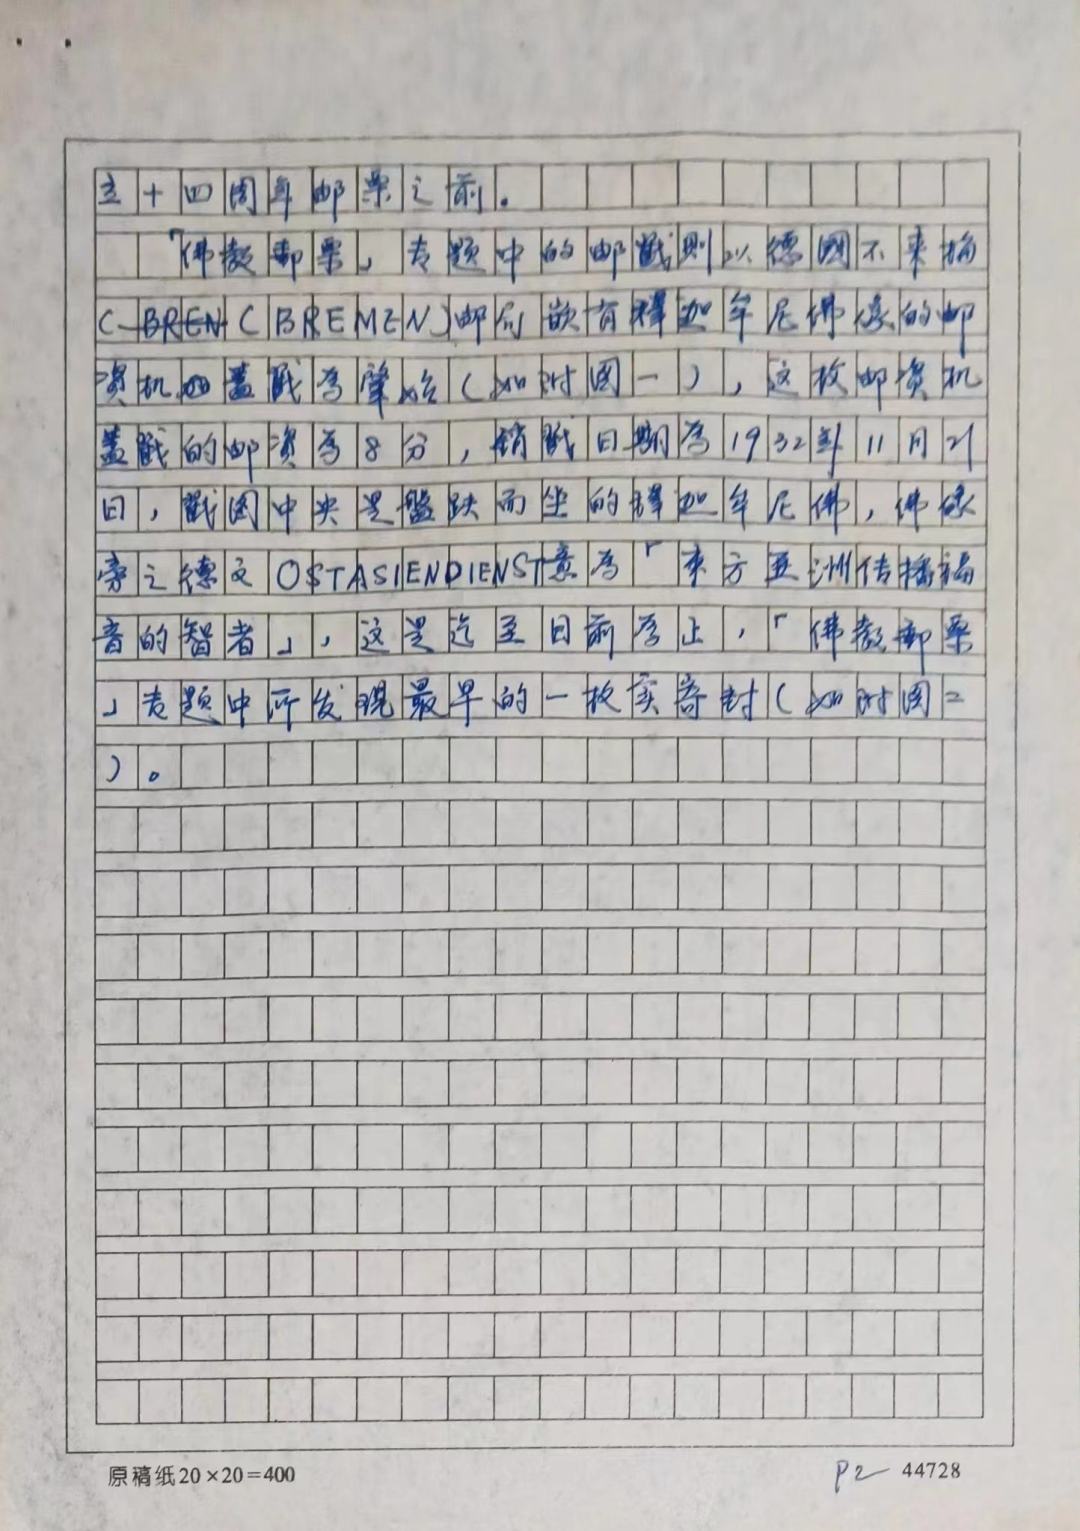 立十四周年邮票之前。
「佛教邮票」专题中的邮戳则以德国不来梅
(BREN(BREMEN)邮局嵌有释迦牟尼佛像的邮
资机盖戳为肇始(如附图一),这枚邮资机
盖戳的邮资为8分,销戳日期为1932年11月21
日,戳图中央是盘趺而坐的释迦牟尼佛,佛像
旁之德文OSTASIENDIENST意为「东方亚洲传播福
音的智者」,这是迄至目前为止,「佛教邮票
」专题中所发现最早的一枚实寄封(如附图二
)。
原稿纸20×20=400
P2 44728